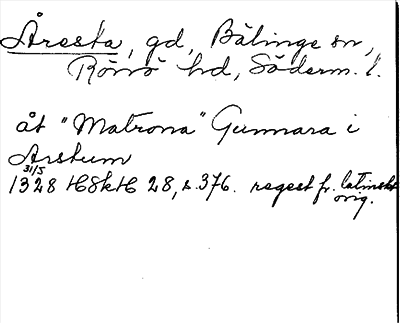 Åresta, gd, Bälinge sn,
Rönö hd, Söderm. l.
åt "Matrona" Gunnara i
Arstum
31/5
1328 HSH 28, s. 376. regest fr. latinskt
orig.